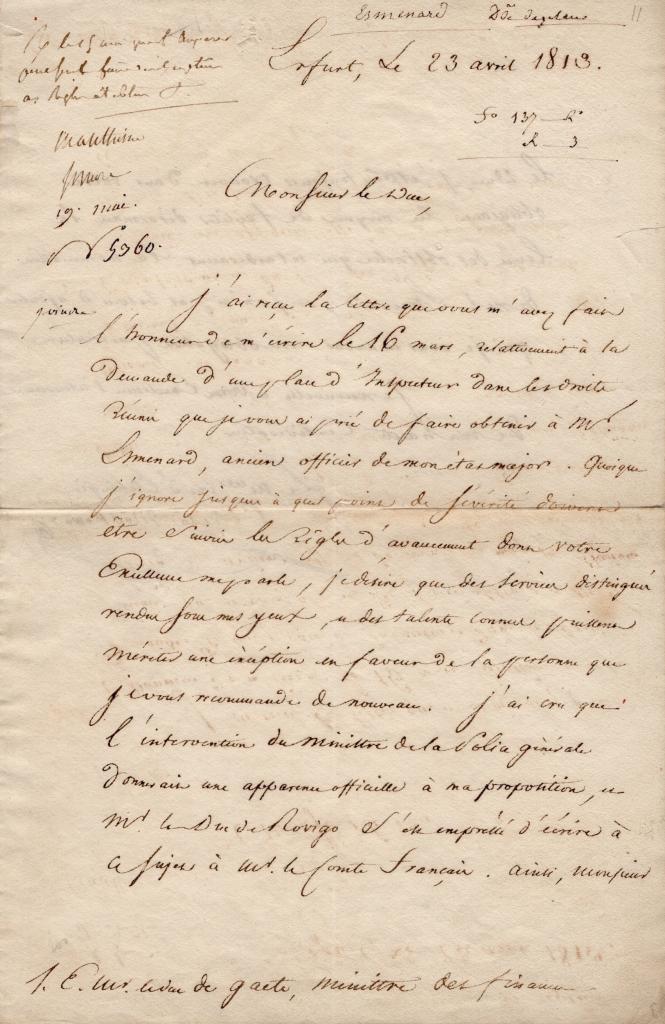 Esmenard
11
Erfurt, Le 23 avril 1813.
137
R 3
19. mai.
N° 5960.
Monsieur le Duc,
joindre
J'ai reçu la lettre que vous m'avez fait
l'honneur de m'écrire le 16 mars, relativement à la
Demande d'une place d'Inspecteur dans les droits
réunis que je vous ai prié de faire obtenir à Mr.
Esmenard, ancien officier de mon état major. Quoique
j'ignore jusques à quel point de sévérité doivent
être suivies les règles d'avancement dont votre
Excellence me parle, je désire que des services distingués
rendus sous mes yeux, et des talents connus puissent
mériter une exception en faveur de la personne que
je vous recommande de nouveau. J'ai cru que
l'intervention du Ministre de la Police générale
donnerait une apparence officielle à ma proposition, et
Mr. le Duc de Rovigo s'est empressé d'écrire à
ce sujet à Mr. le Comte Français. Ainsi, Monsieur
S. E. Mr. le Duc de gaete, ministre des finances